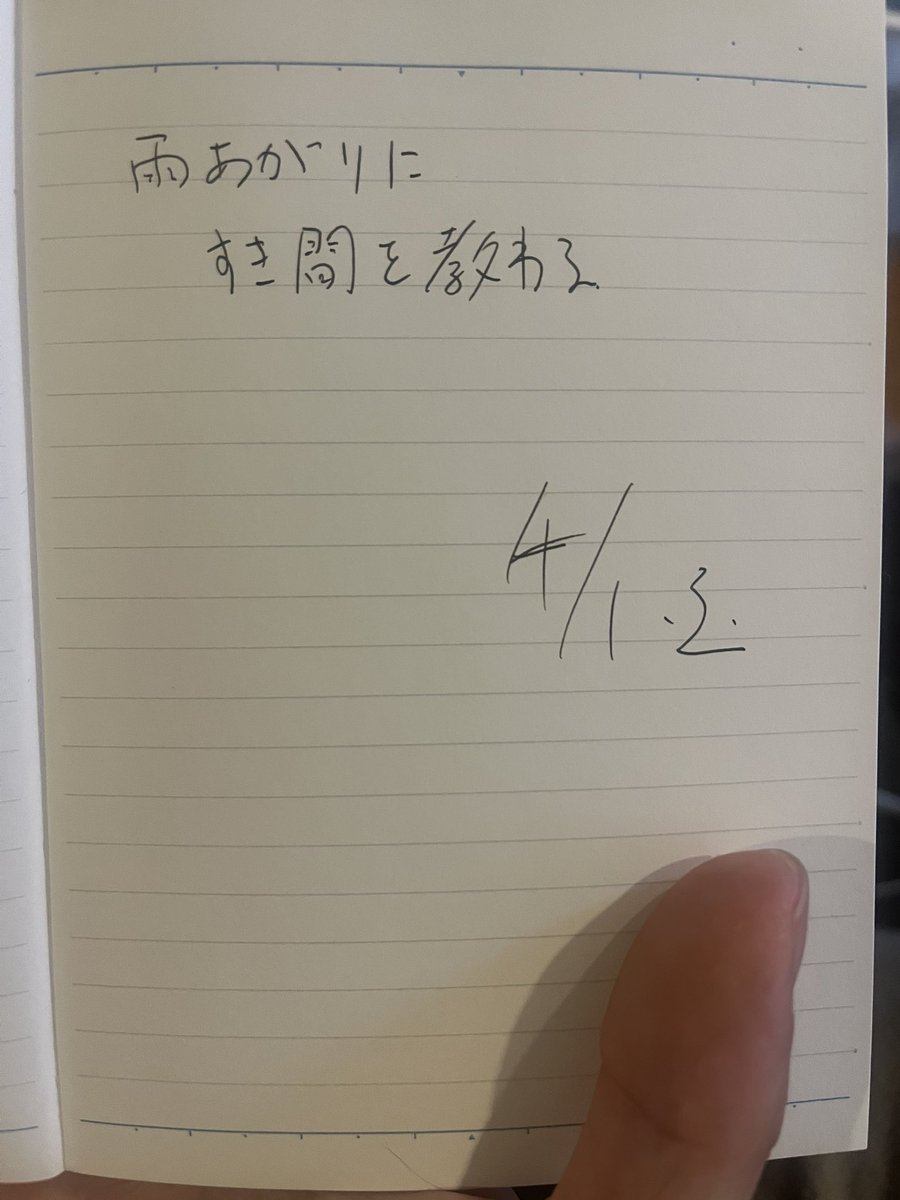 雨あがりに
すき間を教わる
4/1